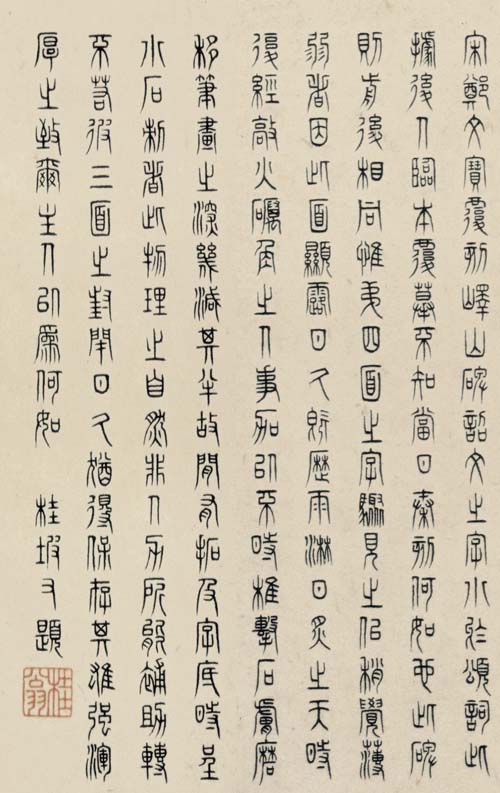 宋鄭文寶覆刻嶧山碑詔文之字小於頌詞此
據後人臨本覆摹不知當日秦刻何如也此碑
則前後相同惟弟四面之字驟見之似稍覺薄
弱者因此面顯露日久飽歷雨淋日炙之天時
復經敲火礪角之人事加以不時椎擊石膚磨
移筆畫之深幾減其半故間有拓及字底時呈
小石刺者此物理之自然非人力所能補助轉
不若彼三面之封閉日久猶得保存其雄強渾
厚之致爾主人以為何如 桂坡又題
桂翁